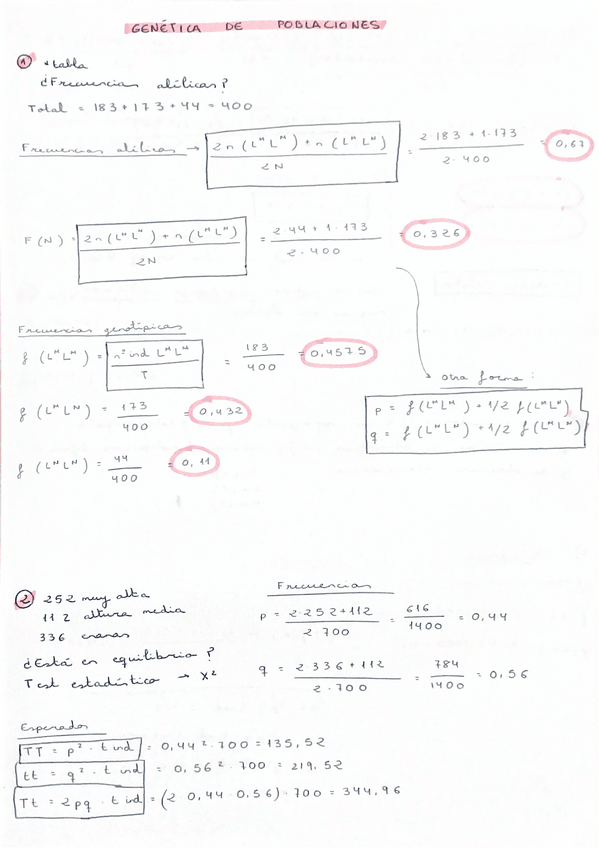 GENÉTICA DE POBLACIONES
① * tabla
¿Frecuencias alélicas?
Total = 183 + 173 + 44 = 400
Frecuencias alélicas → 2n (LᴹLᴹ) + n (LᴹLᴺ) / 2N = 2·183 + 1·173 / 2·400 = 0,67
F(N) = 2n (LᴺLᴺ) + n (LᴹLᴺ) / 2N = 2·44 + 1·173 / 2·400 = 0,326
Frecuencias genotípicas
f (LᴹLᴹ) = nº ind LᴹLᴹ / T = 183 / 400 = 0,4575
otra forma:
f (LᴹLᴺ) = 173 / 400 = 0,432
p = f (LᴹLᴹ) + 1/2 f (LᴹLᴺ)
q = f (LᴺLᴺ) + 1/2 f (LᴹLᴺ)
f (LᴺLᴺ) = 44 / 400 = 0,11
② 252 muy alta
112 altura media
336 enanas
¿Está en equilibrio?
Test estadístico → X²
Frecuencias
p = 2·252+112 / 2·700 = 616 / 1400 = 0,44
q = 2·336+112 / 2·700 = 784 / 1400 = 0,56
Esperados
TT = p² · t ind = 0,44² · 700 = 135,52
tt = q² · t ind = 0,56² · 700 = 219,52
Tt = 2pq · t ind = (2·0,44·0,56)·700 = 344,96